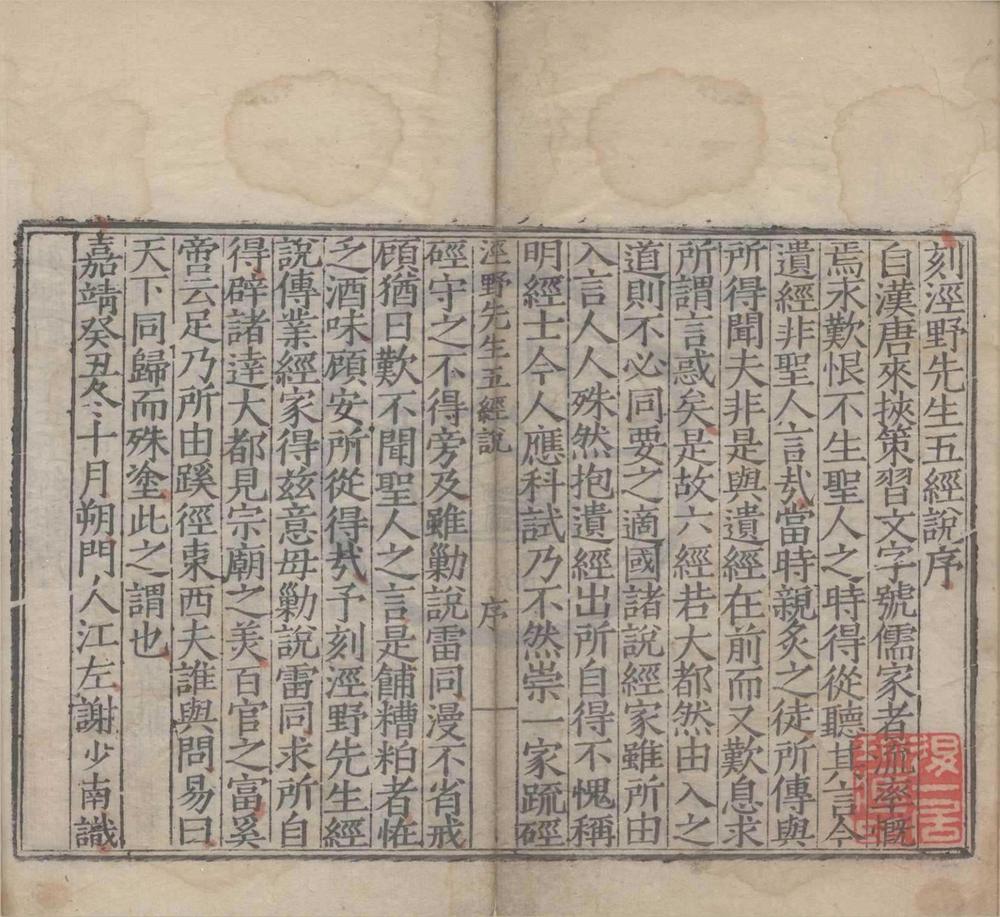 刻涇野先生五經說序
自漢唐來挾策習文字號儒家者流率慨
焉永歎恨不生聖人之時得從聽其言今
遺經非聖人言㢤當時親炙之徒所傳與
所得聞夫非是與遺經在前而又歎息求
所謂言惑矣是故六經若大都然由入之
道則不必同要之適國諸說經家雖所由
入言人人殊然抱遺經出所自得不愧稱
明經士今人應科試乃不然崇一家䟽硜
涇野先生五經說 序 一
硜守之不得旁及雖勦說雷同漫不省戒
顧猶日歎不聞聖人之言是餔糟粕者恠
乏酒味顧安所從得㢤予刻涇野先生經
說傳業經家得兹意毋勦說雷同求所自
得辟諸達大都見宗廟之美百官之富奚
啻云足乃所由蹊徑東西夫誰與問易曰
天下同歸而殊塗此之謂也
嘉靖癸丑冬十月朔門人江左謝少南識